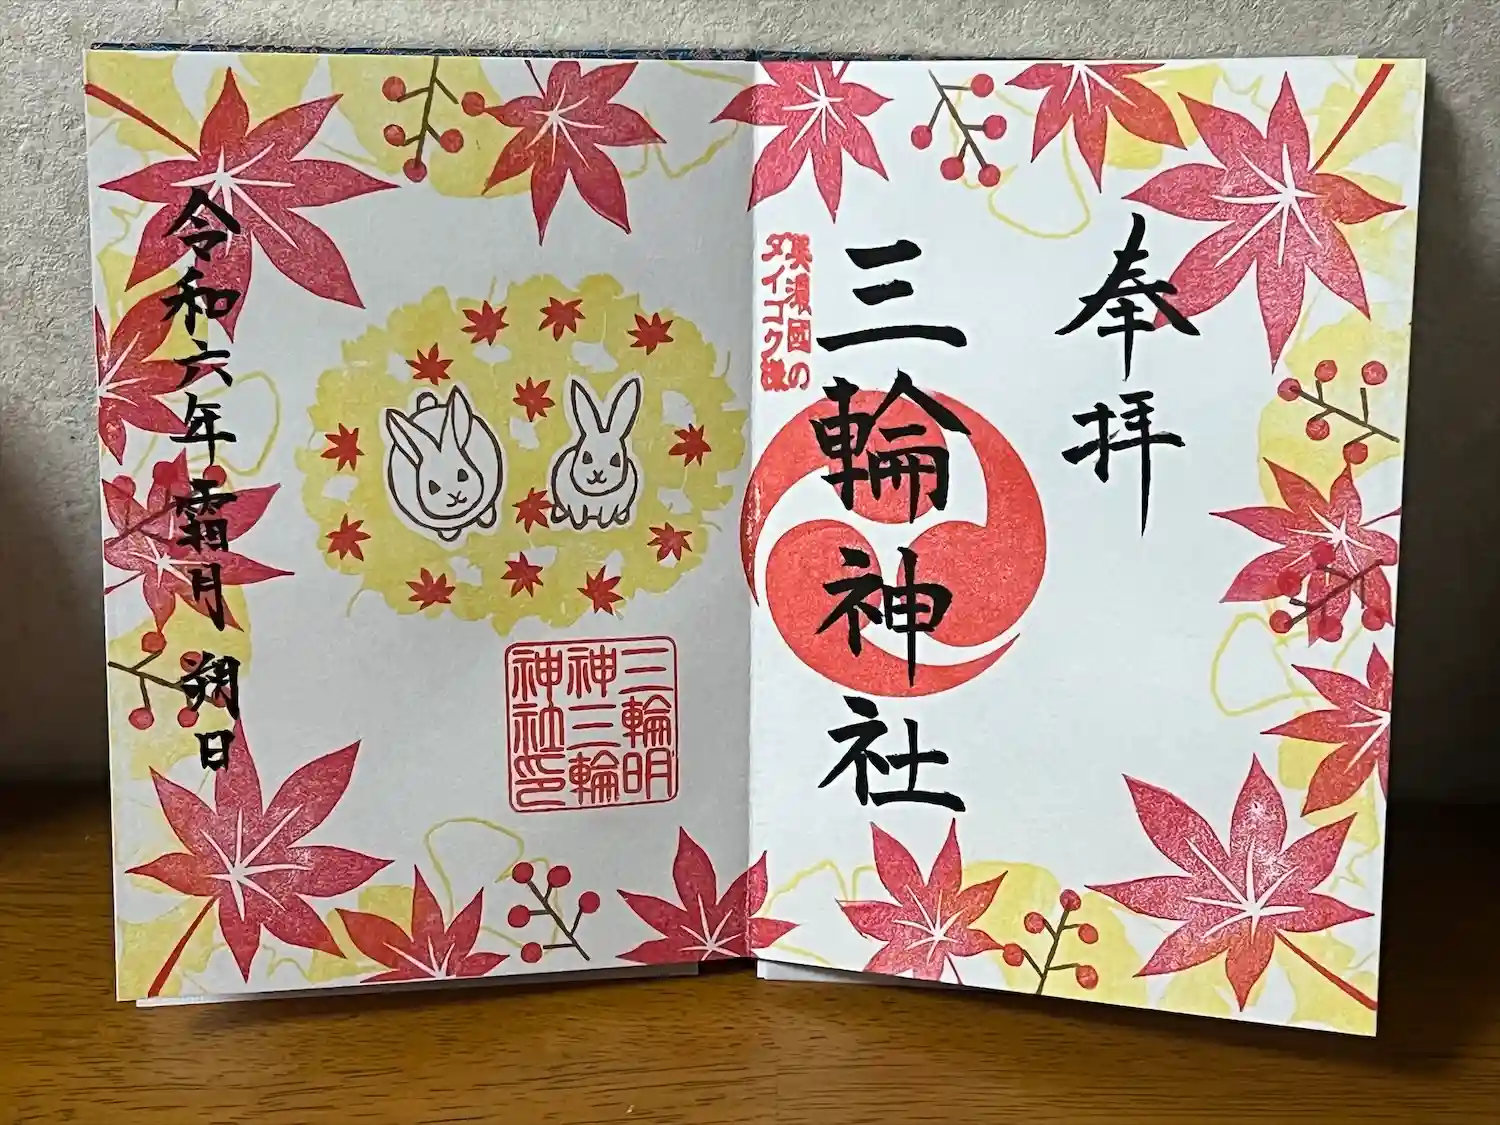 奉拝
三輪神社
美濃國の
ダイコク様
三輪明
神三輪
神社印
令和六年霜月 朔日